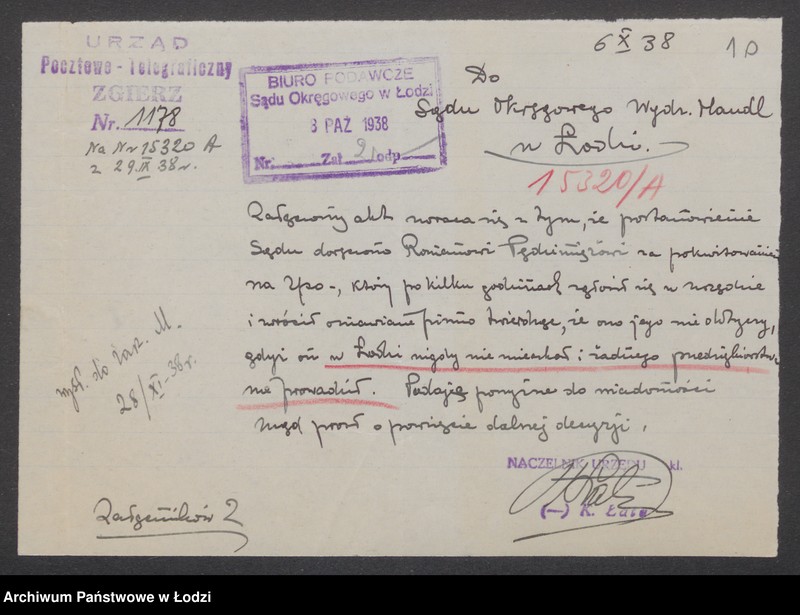 URZĄD
Pocztowo-Telegraficzny
ZGIERZ
Nr. 1178
Na Nr 15320 A
z 29.IX 38 r.
BIURO PODAWCZE
Sądu Okręgowego w Łodzi
8 PAŹ 1938
Nr. Zał 2 odp
6 X 38
10
Do
Sądu Okręgowego Wydz. Handl
w Łodzi.
15320/A
Załączony akt zwraca się z tym, że postanowienie
Sądu doręczono Romanowi za pokwitowaniem
na, który po kilku godzinach zgłosił się w urzędzie
i zwrócił omawiane pismo twierdząc, że ono jego nie dotyczy,
gdyż on w Łodzi nigdy nie mieszkał i żadnego przedsiębiorstwa
nie prowadził. Podając powyższe do wiadomości
Urząd prosi o powzięcie dalszej decyzji.
do M.
28/XI-38r.
NACZELNIK URZĘDU kl.
(—) K.
Załączników 2
Archiwum Państwowe w Łodzi